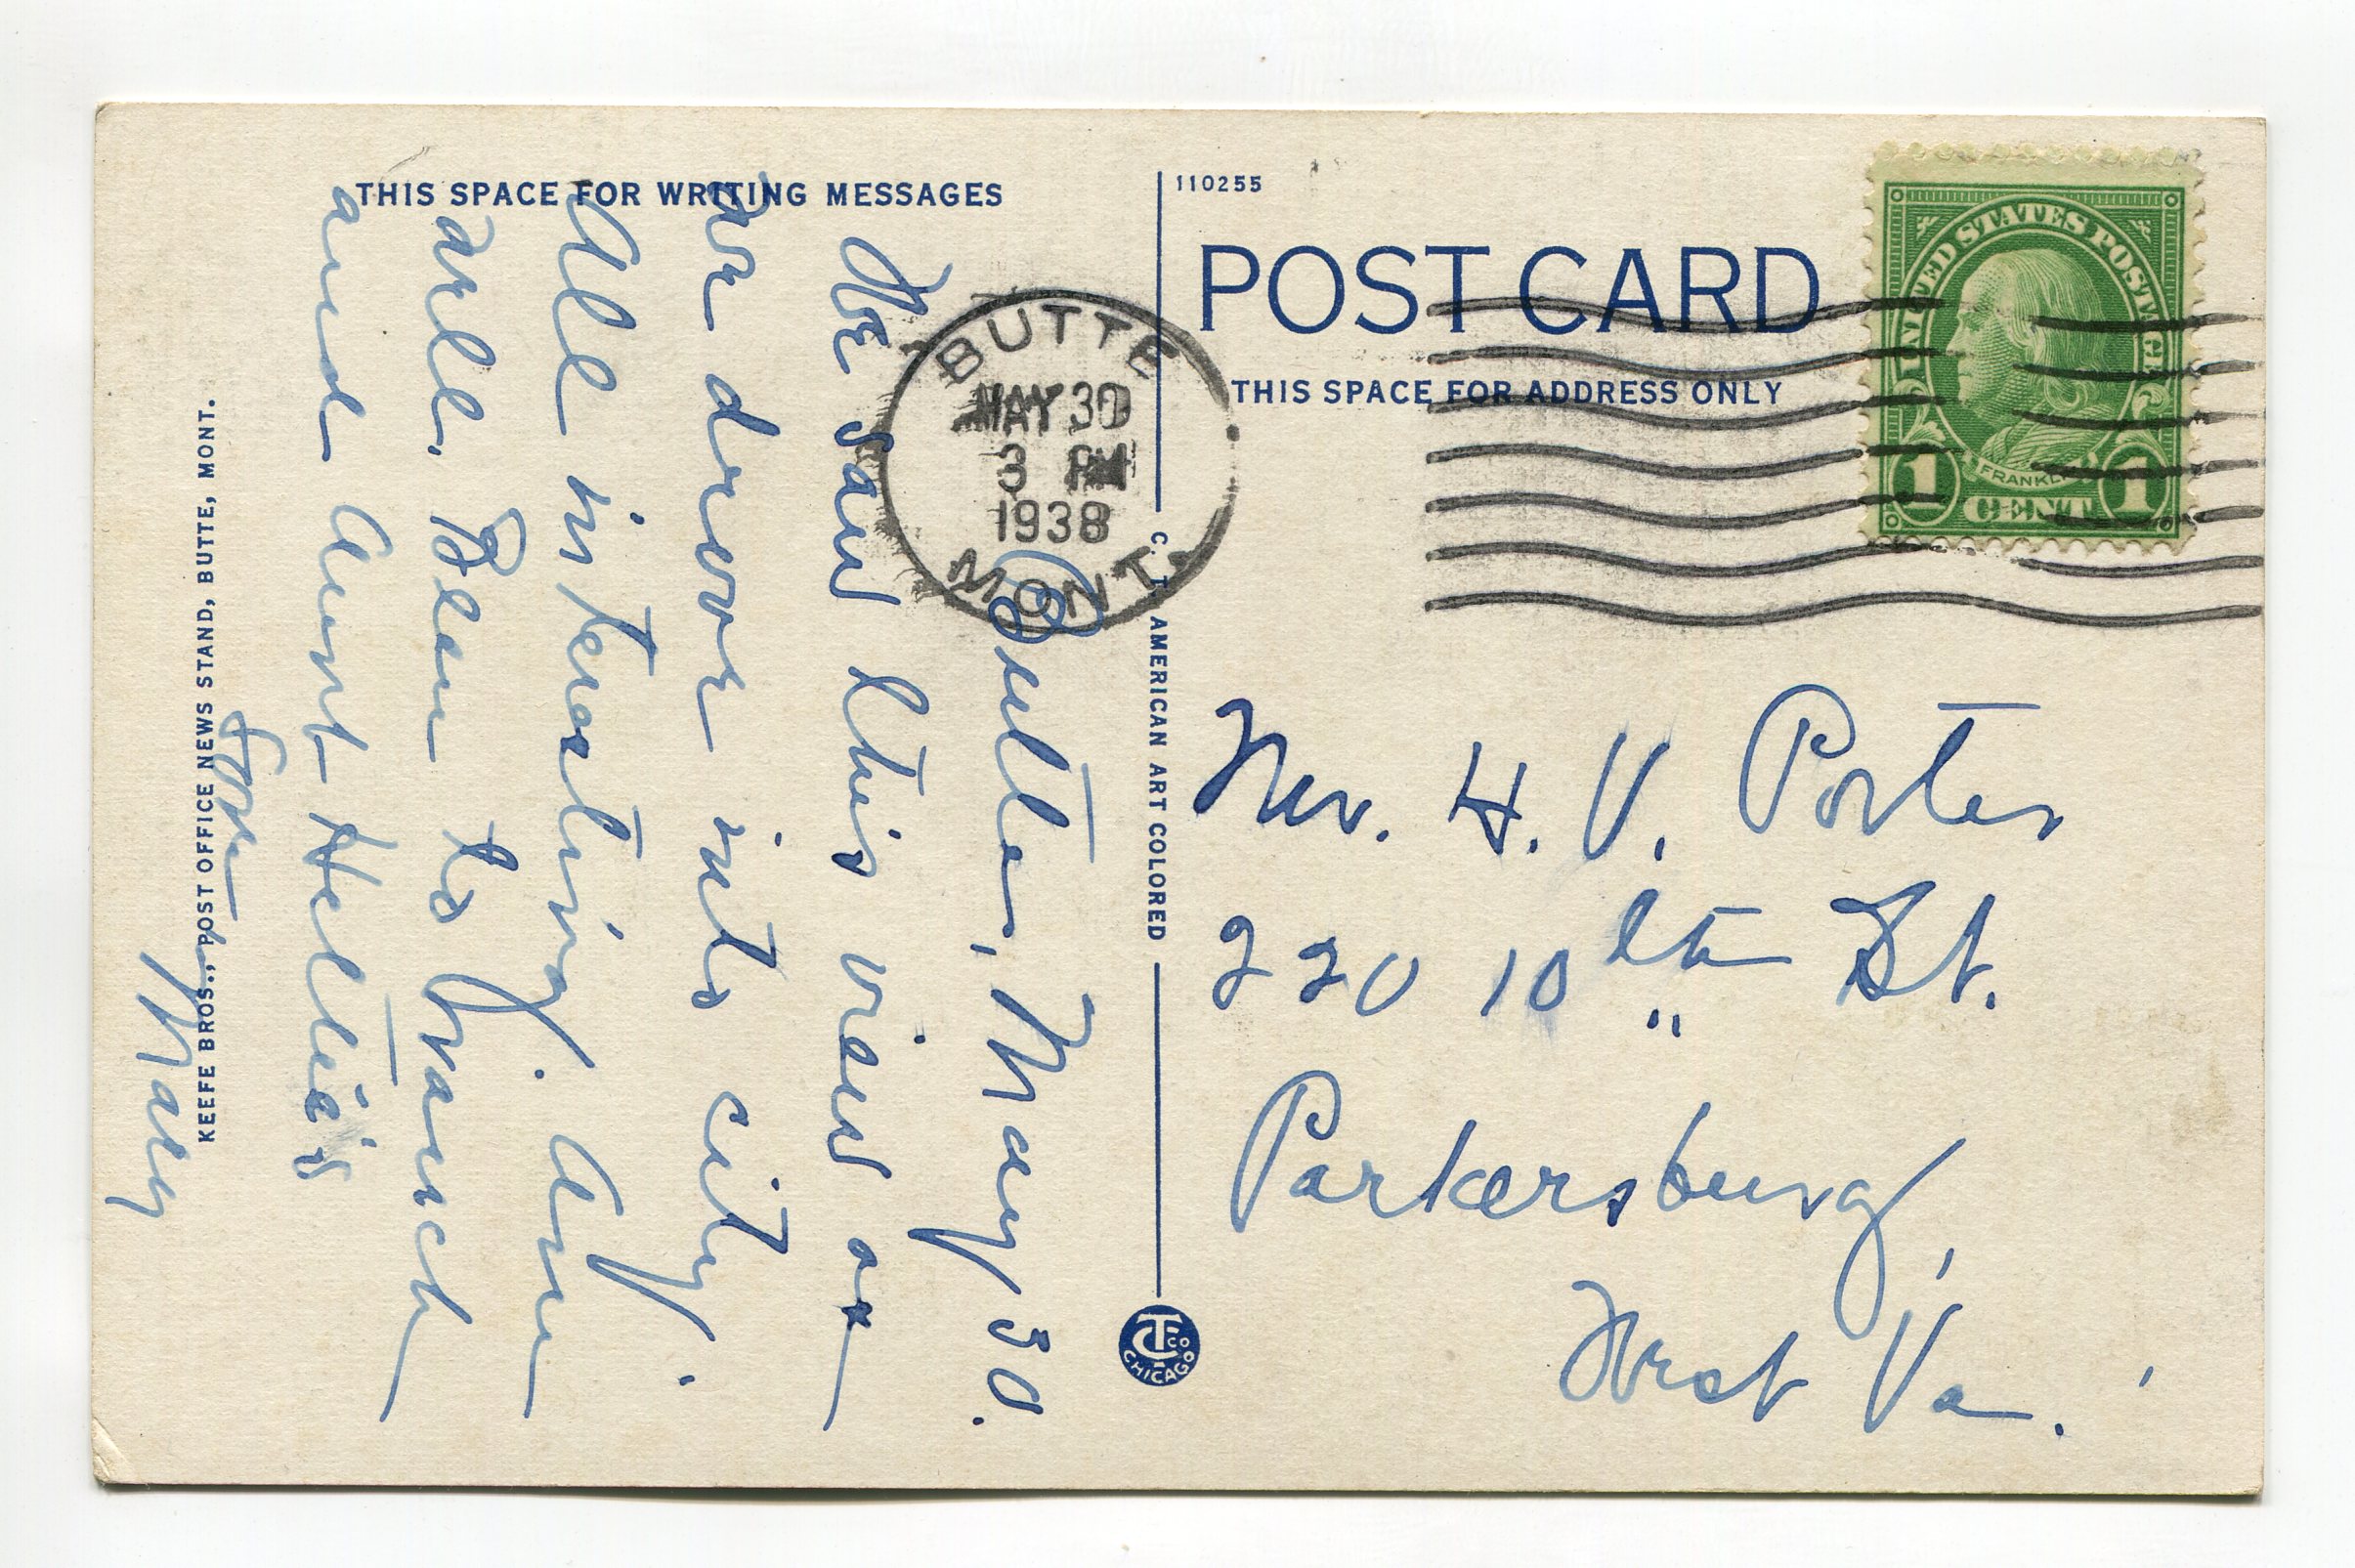 THIS SPACE FOR WRITING MESSAGES
Butte, May 30.
We saw this view as
we drove into city.
All interesting. Am
well. Plan to reach
and Aunt Hettie's
Love
Mary
KEEFE BROS., POST OFFICE NEWS STAND, BUTTE, MONT.
BUTTE
MAY 30
3 PM
1938
MONT.
C. T. AMERICAN ART COLORED
110255
POST CARD
THIS SPACE FOR ADDRESS ONLY
UNITED STATES POSTAGE
FRANKLIN
1 CENT 1
Mr. H. V. Porter
220 10th St.
Parkersburg,
West Va.
CTCo
CHICAGO